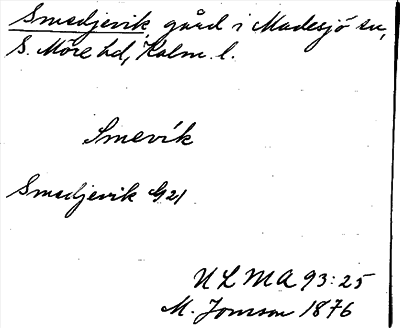 Smedjevik, gård i Madesjö sn,
S. Möre hd, Kalm. l.
Smevik
Smedjevik G21
ULMA 93:25
M. Jonsson 1876